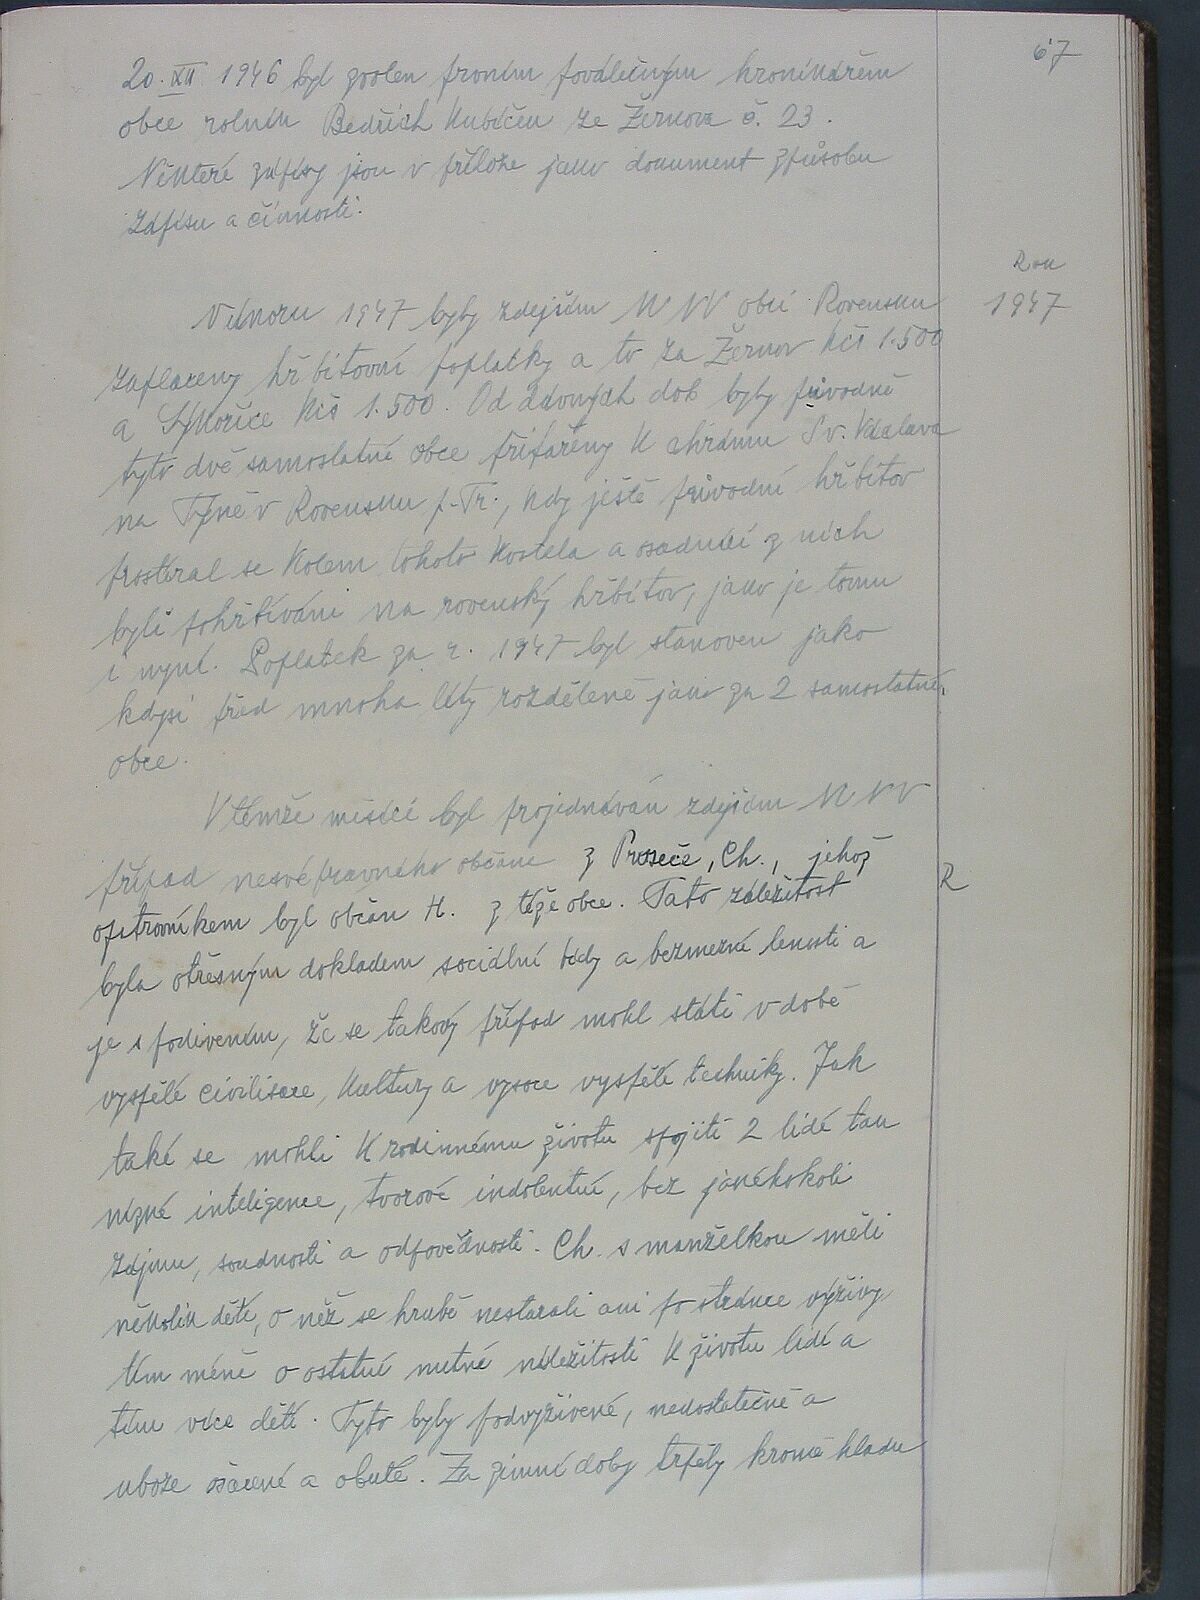 67
20. XII 1946 byl zvolen prvním poválečným kronikářem
obce rolník Bedřich Kubíček ze Žernova č. 23.
Některé zápisy jsou v příloze jako dokument způsobu
zápisu a činnosti.
Rok
1947
V únoru 1947 byly zdejším MNV obci Rovensku
zaplaceny hřbitovní poplatky a to za Žernov Kčs 1.500
a Sýkořice Kčs 1.500. Od dávných dob byly původně
tyto dvě samostatné obce přifařeny k chrámu Sv. Václava
na Týně v Rovensku p. Tr., kdy ještě původní hřbitov
prostíral se kolem tohoto kostela a osadníci z nich
byli pohřbíváni na rovenský hřbitov, jako je tomu
i nyní. Poplatek za r. 1947 byl stanoven jako
kdysi před mnoha léty rozděleně jako za 2 samostatné
obce.
V témže měsíci byl projednáván zdejším MNV
případ nesvéprávného občana z Proseče, Ch., jehož
R
opatrovníkem byl občan H. z téže obce. Tato záležitost
byla otřesným dokladem sociální bídy a bezmezné lenosti a
je s podivením, že se takový případ mohl státi v době
vyspělé civilisace, kultury a vysoce vyspělé techniky. Jak
také se mohli k rodinnému životu spojiti 2 lidé tak
nízné inteligence, tvorové indolentní, bez jakéhokoli
zájmu, soudnosti a odpovědnosti. Ch. s manželkou měli
několik dětí, o něž se hrubě nestarali ani po stránce výživy
tím méně o ostatní nutné náležitosti k životu lidí a
tím více dětí. Tyto byly podvyživené, nedostatečně a
uboze ošacené a obuté. Za zimní doby trpěly kromě hladu